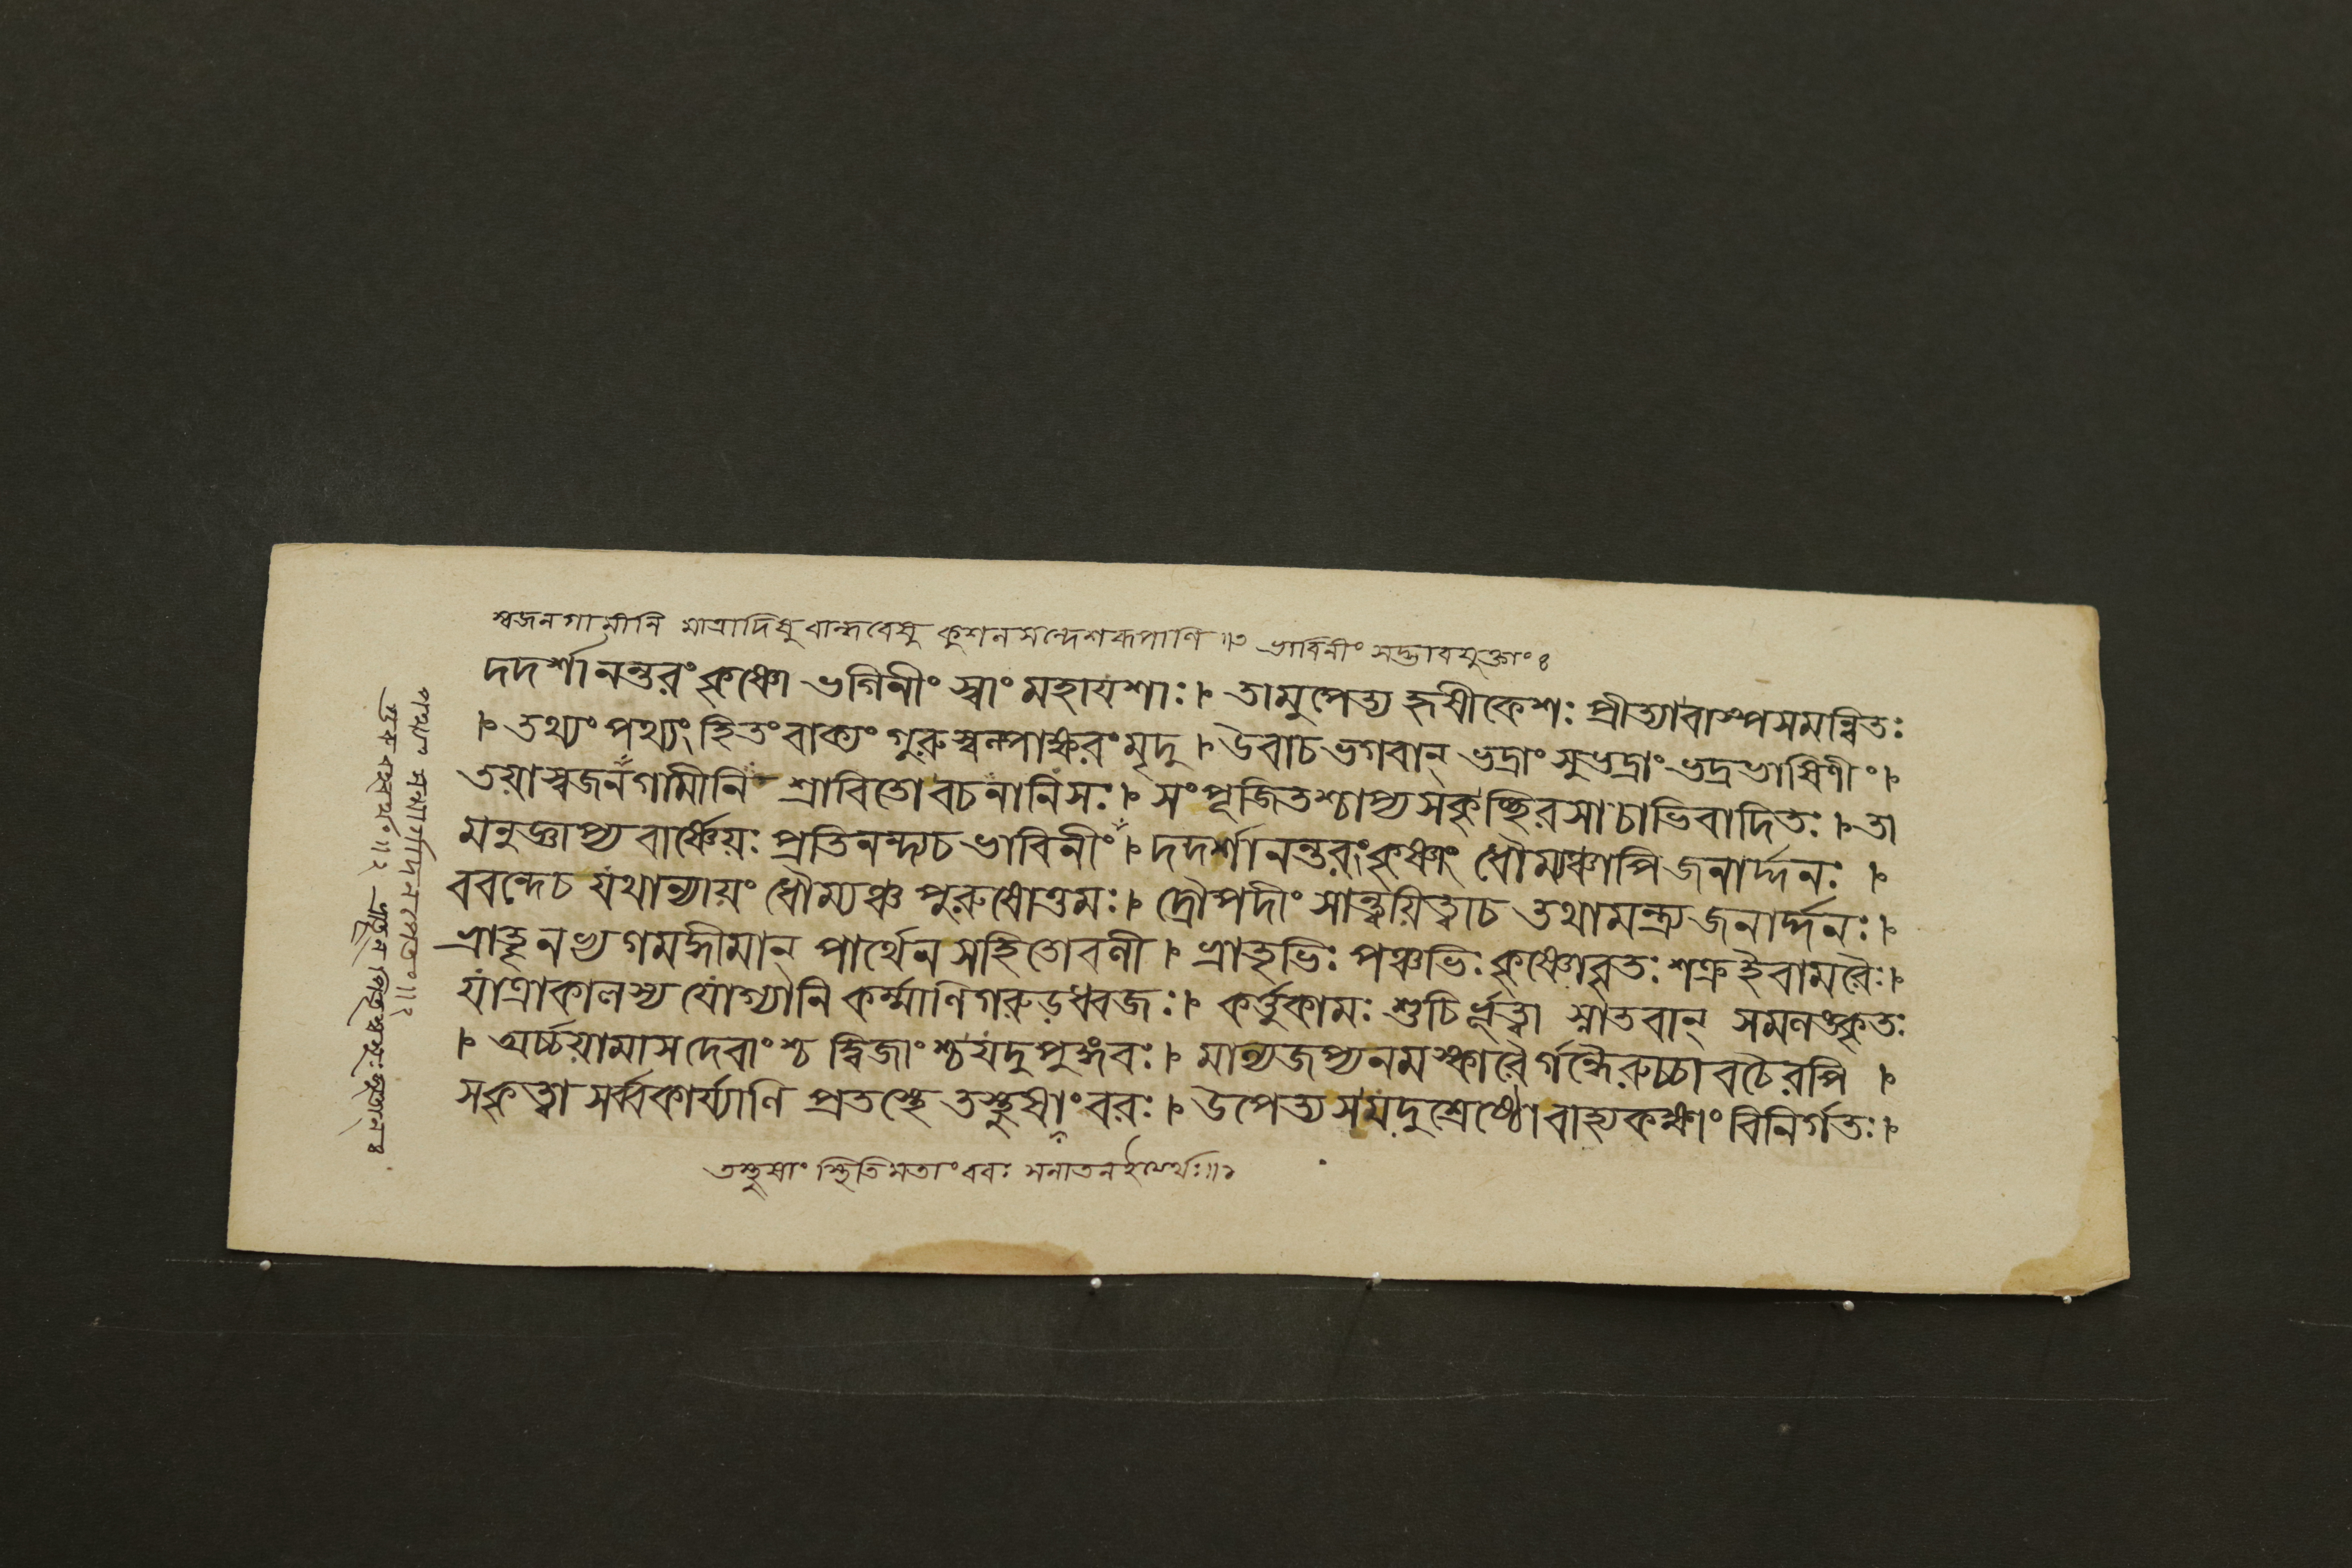 স্বজনগামীনি মাত্রাদিষু বান্ধবেষু কুশলসন্দেশরূপাণি ॥৩ ভাবিনীং সদ্ভাবযুক্তাং ৪
দদর্শানন্তরং কৃষ্ণো ভগিনীং স্বাং মহাযশাঃ। তামুপেত্য হৃষীকেশঃ প্রীত্যাবাস্পসমন্বিতঃ
। তথ্যং পথ্যং হিতং বাক্যং গুরুস্বল্পাক্ষরং মৃদু। উবাচ ভগবান্ ভদ্রাং সুভদ্রাং ভদ্রভাষিণীং।
তয়া স্বজনগামীনি শ্রাবিতো বচনানি সঃ। সংপূজিতশ্চাপ্যসকৃচ্ছিরসা চাভিবাদিতঃ। তা
মনুজ্ঞাপ্য বার্ষ্ণেয়ঃ প্রতিনন্দ্য চ ভাবিনীং। দদর্শানন্তরং কৃষ্ণাং ধৌম্যঞ্চাপি জনার্দ্দনঃ।
ববন্দে চ যথান্যায়ং ধৌম্যঞ্চ পুরুষোত্তমঃ। দ্রৌপদীং সান্ত্বয়িত্বা চ তথামন্ত্র্য জনার্দ্দনঃ।
ভ্রাতৄনভ্যগমদ্ধীমান্ পার্থেন সহিতো বলী। ভ্রাতৃভিঃ পঞ্চভিঃ কৃষ্ণোবৃতঃ শক্র ইবামরৈঃ।
যাত্রাকালস্য যোগ্যানি কর্ম্মাণি গরুড়ধ্বজঃ। কর্ত্তুকামঃ শুচির্ভূত্বা স্নাতবান্ সমলঙ্কৃতঃ
। অর্চ্চয়ামাস দেবাংশ্চ দ্বিজাংশ্চ যদুপুঙ্গবঃ। মাল্যজপ্যনমস্কারৈর্গন্ধৈরুচ্চাবচৈরপি।
সকৃত্বা সর্ব্বকার্য্যাণি প্রতস্থে তস্থুষাং বরঃ। উপেত্য স যদুশ্রেষ্ঠো বাহ্যকক্ষাং বিনির্গতঃ।
তস্থুষাং স্থিতিমতাং বরঃ সনাতনইত্যর্থঃ॥১